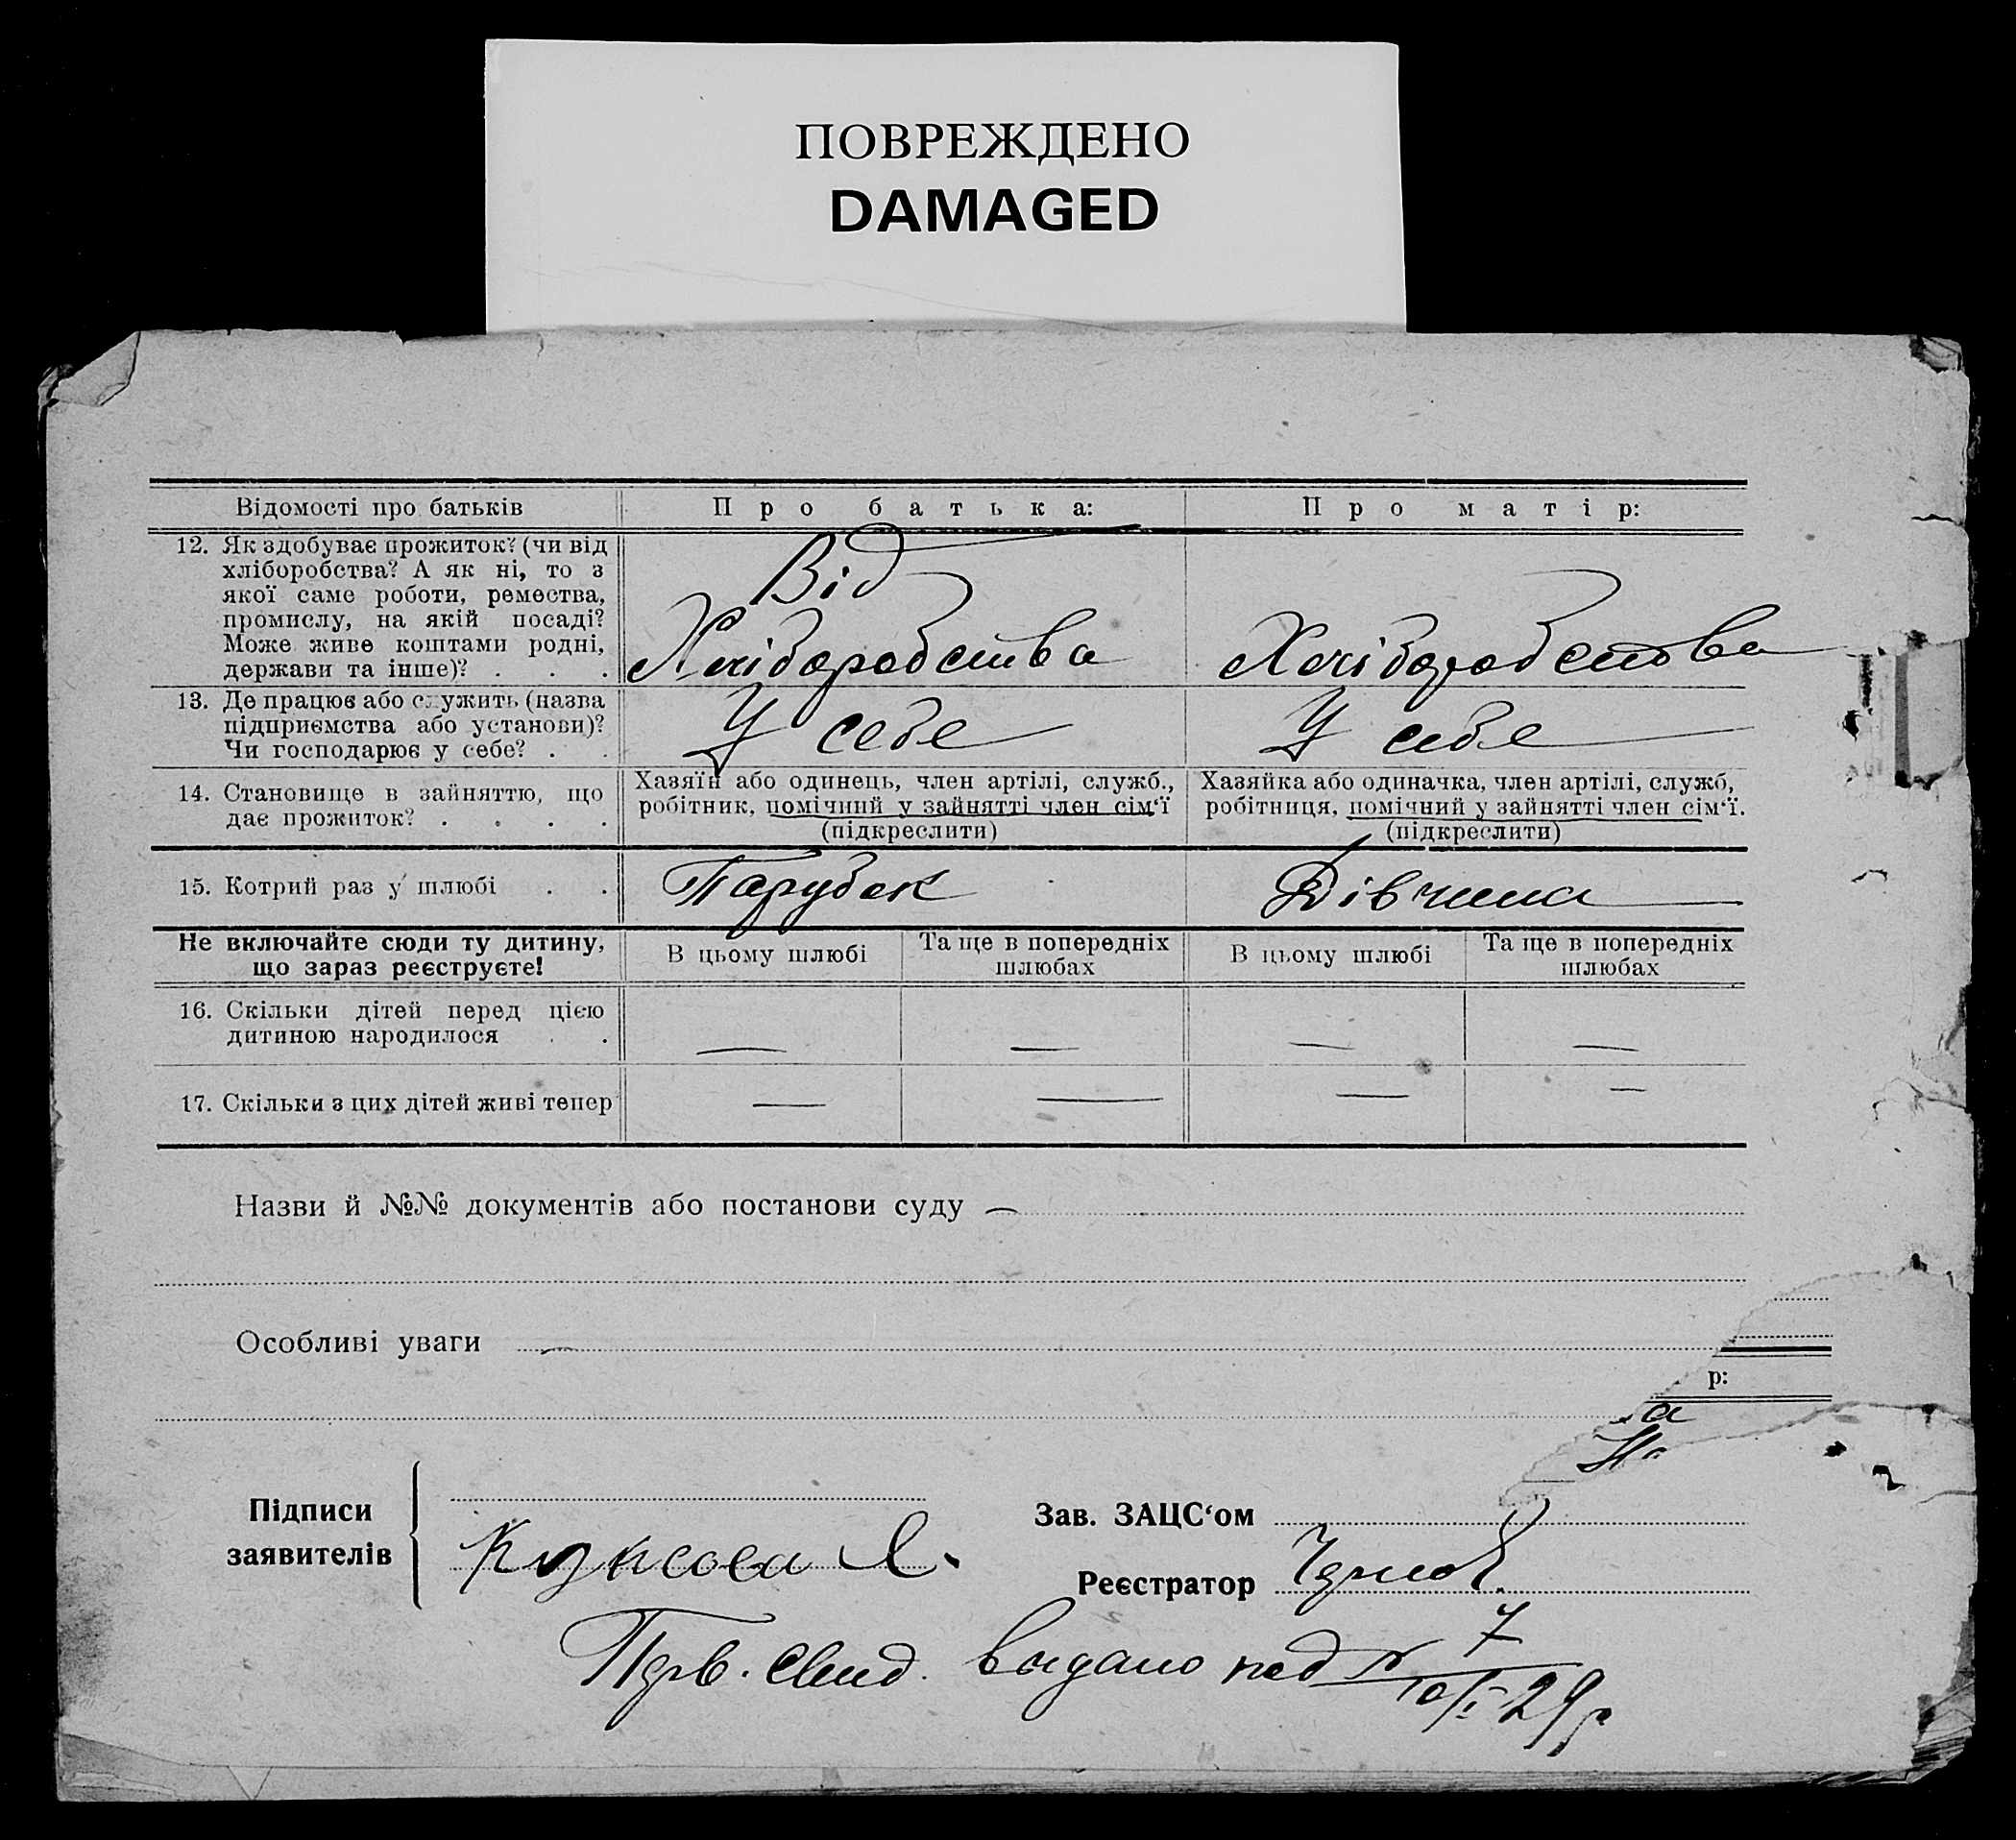 ПОВРЕЖДЕНО
DAMAGED
Відомості про батьків
Про батька:
Про матір:
12. Як здобуває прожиток? (чи від
хліборобства? А як ні, то з
якої саме роботи, ремества,
промислу, на якій посаді?
Може живе коштами родні,
держави та інше)? . . .
Від
Хліборобства
Хліборобства
13. Де працює або служить (назва
підприємства або установи)?
Чи господарює у себе? . .
У себе
У себе
14. Становище в зайняттю, що
дає прожиток? . . . .
Хазяїн або одинець, член артілі, служб.,
робітник, помічний у зайнятті член сім‘ї
(підкреслити)
Хазяйка або одиначка, член артілі, служб,
робітниця, помічний у зайнятті член сім‘ї.
(підкреслити)
15. Котрий раз у шлюбі . .
Парубок
Дівчина
Не включайте сюди ту дитину,
що зараз реєструєте!
В цьому шлюбі
Та ще в попередніх
шлюбах
В цьому шлюбі
Та ще в попередніх
шлюбах
16. Скільки дітей перед цією
дитиною народилося . .
— — — —
17. Скільки з цих дітей живі тепер
— — — —
Назви й №№ документів або постанови суду —
Особливі уваги —
р:
а
Підписи
заявителів
Зав. ЗАЦС‘ом
Реєстратор
выдано под № 7
10/I 29 р